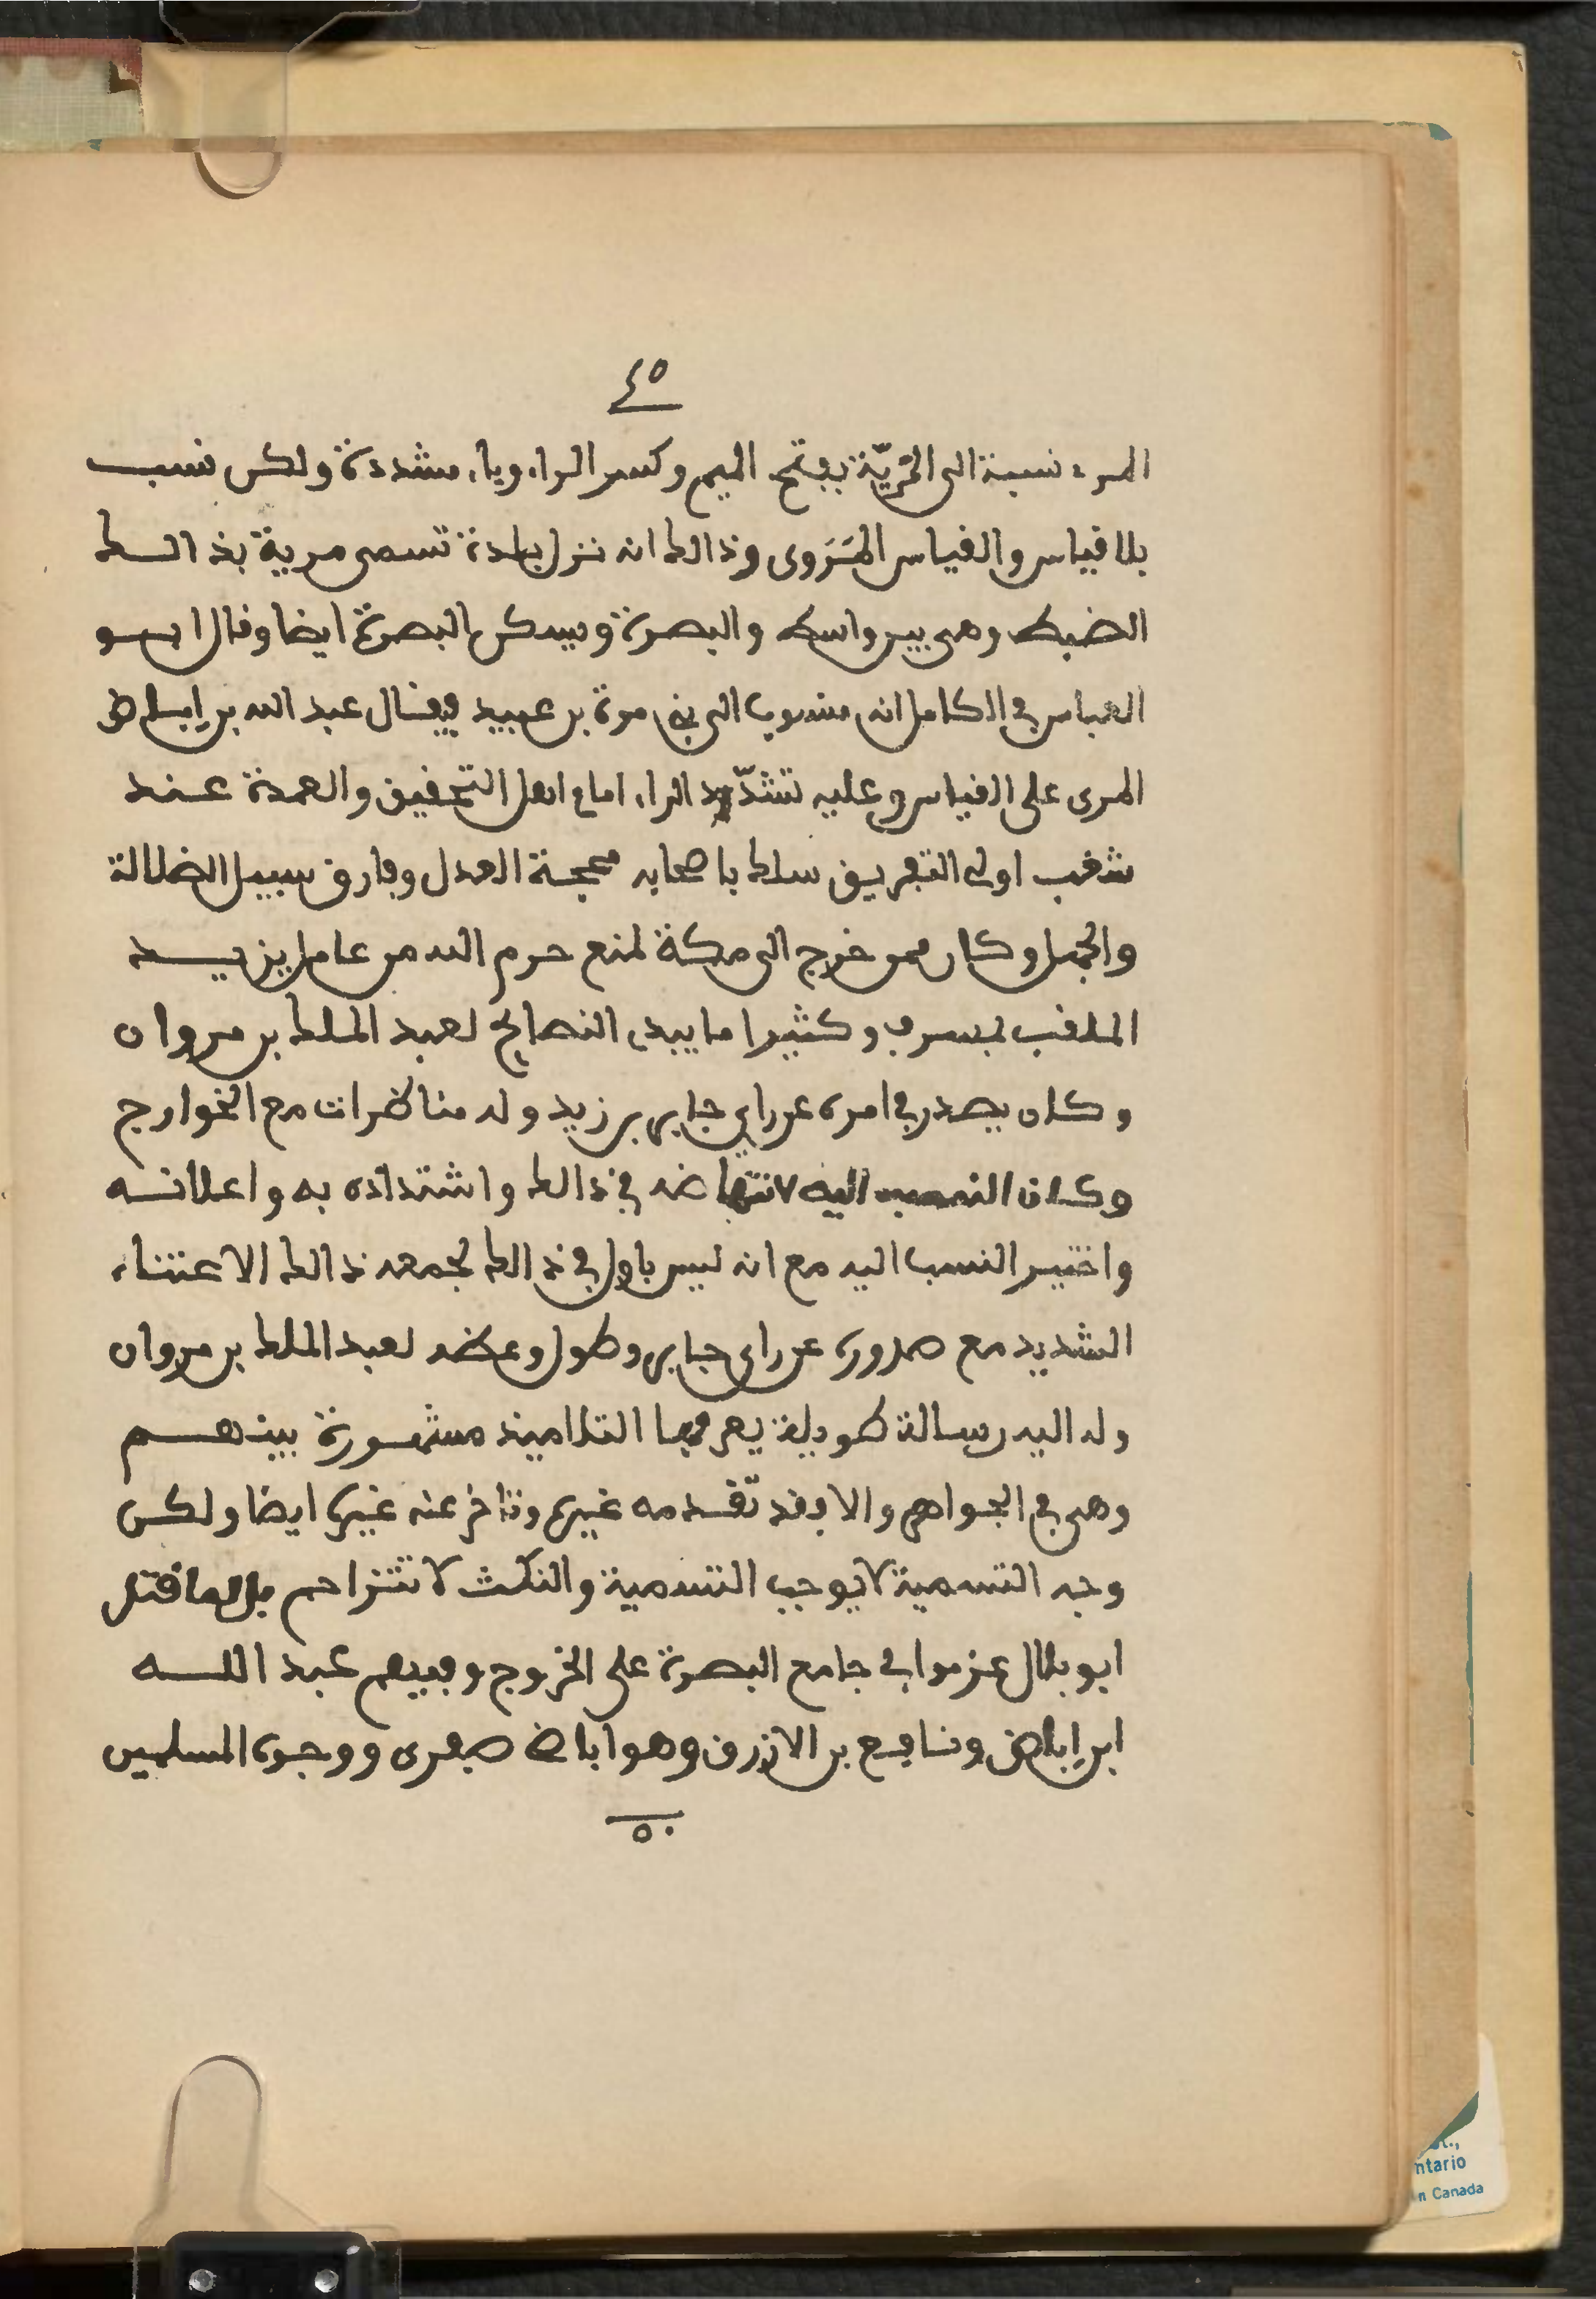 ٤٥
المرء نسبة الى المَرِيّة بفتح الميم وكسر الراء وياء مشددة ولكن نسب
بلا قياس والقياس المَرَوى وذالك انه نزل بلدة تسمى مرية بذالك
الضبط وهى بين واسط والبصرة ويسكن البصرة ايضا وقال ابو
العباس في الكامل انه منسوب الى بني مرة بن عبيد فيقال عبد الله بن اباض
المرى على القياس وعليه تشدّيد الراء امام اهل التحقيق والعمدة عند
شغب اولى التفريق سلك باصحابه محجة العدل وفارق سبيل الضلالة
والجهل وكان ممن خرج الى مكة لمنع حرم الله من عامل يزيد
الملقب بمسرف وكثيرا ما يبدي النصائح لعبد الملك بن مروان
وكان يصدر في امره عن راي جابر بن زيد وله مناظرات مع الخوارج
وكان النسب اليه لانتهاضه في ذالك واشتداده به واعلانه
واختير النسب اليه مع انه ليس باول في ذالك لجمعه ذالك الاعتناء
الشديد مع صدوره عن راي جابر وطول وعظه لعبد الملك بن مروان
وله اليه رسالة طويلة يعرفها التلاميذ مشهورة بينهم
وهى في الجواهر والا فقد تقدمه غيره وتاخر عنه غيره ايضا ولكن
وجه التسمية لا يوجب التسمية والنكث لا تتزاحم بل لما قتل
ابو بلال عزموا في جامع البصرة على الخروج وفيهم عبد الله
ابن اباض ونافع بن الازرق وهو اباض صفرى ووجوه المسلمين
٥٠
ntario
n Canada